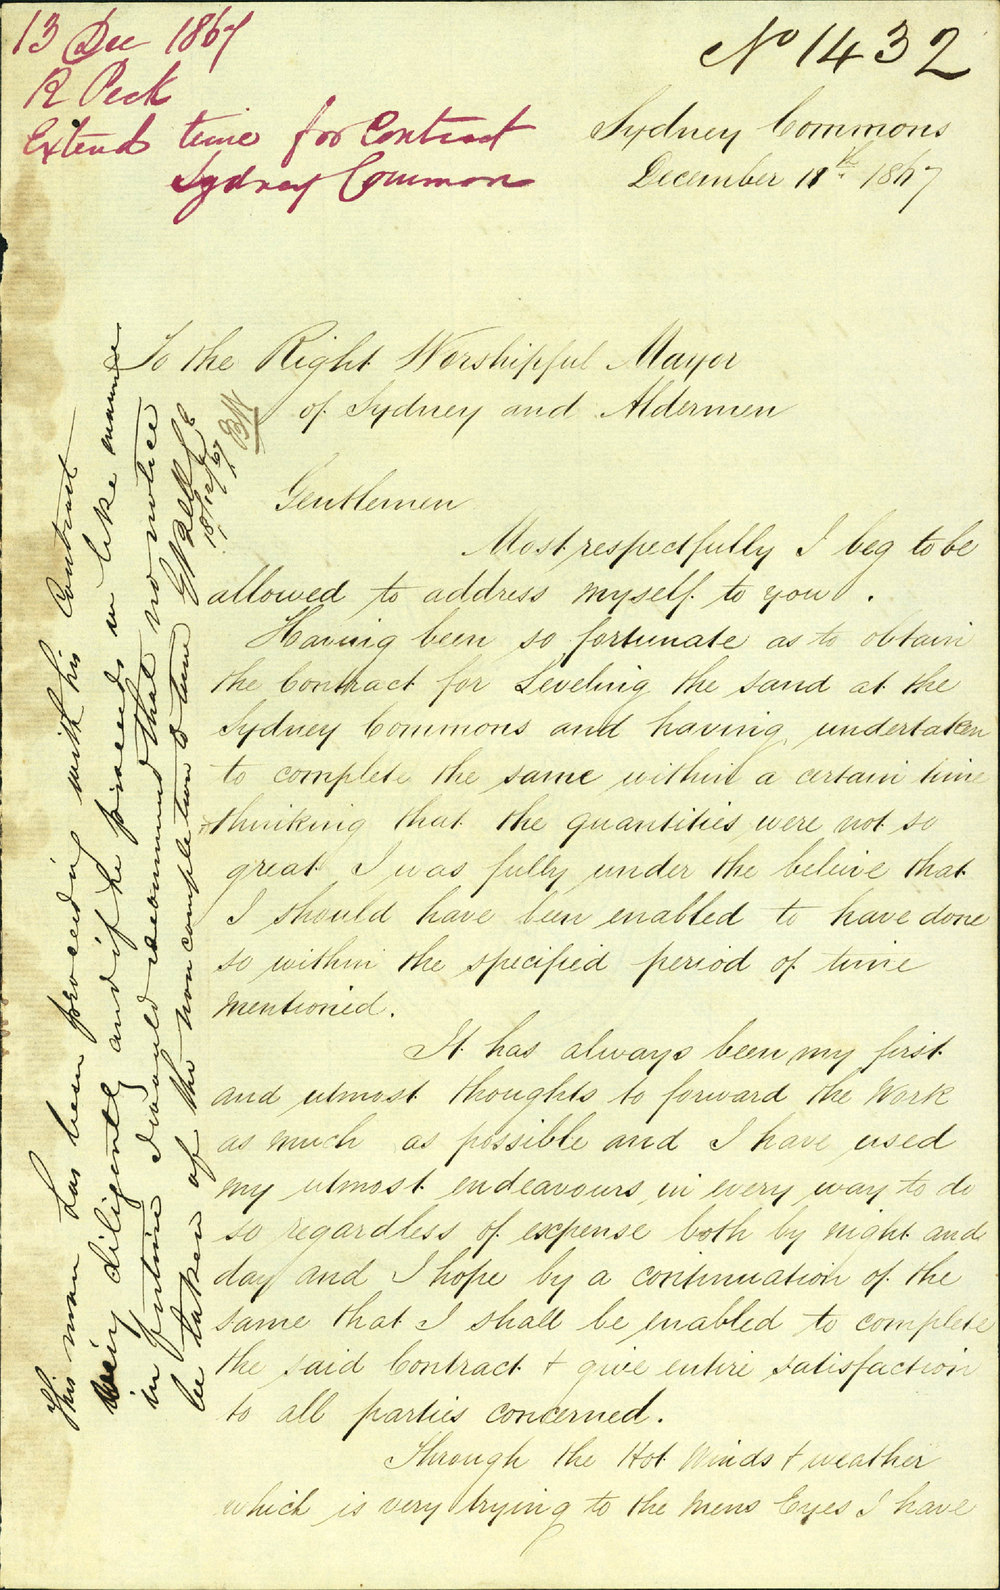 13 Dec 1867
R Peck
Extend time for Contract
Sydney Common
No 1432
Sydney Commons
December 11th 1867
To the Right Worshipful Mayor
of Sydney and Aldermen
Gentlemen
Most respectfully I beg to be
allowed to address myself to you.
Having been so fortunate as to obtain
the Contract for Leveling the sand at the
Sydney Commons and having undertaken
to complete the same within a certain time
thinking that the quantities were not so
great I was fully under the beleive that
I should have been enabled to have done
so within the specified period of time
mentioned.
It has always been my first
and utmost thoughts to forward the Work
as much as possible and I have used
my utmost endeavours in every way to do
so regardless of expense both by night and
day and I hope by a continuation of the
same that I shall be enabled to complete
the said Contract + give entire satisfaction
to all parties concerned.
Through the Hot Winds + weather
which is very trying to the mens Eyes I have
This man has been proceeding with his Contract
very diligently and if he proceeds in like manner
in future I would recommend that no notice
be taken of the non completion to time
18/12/67